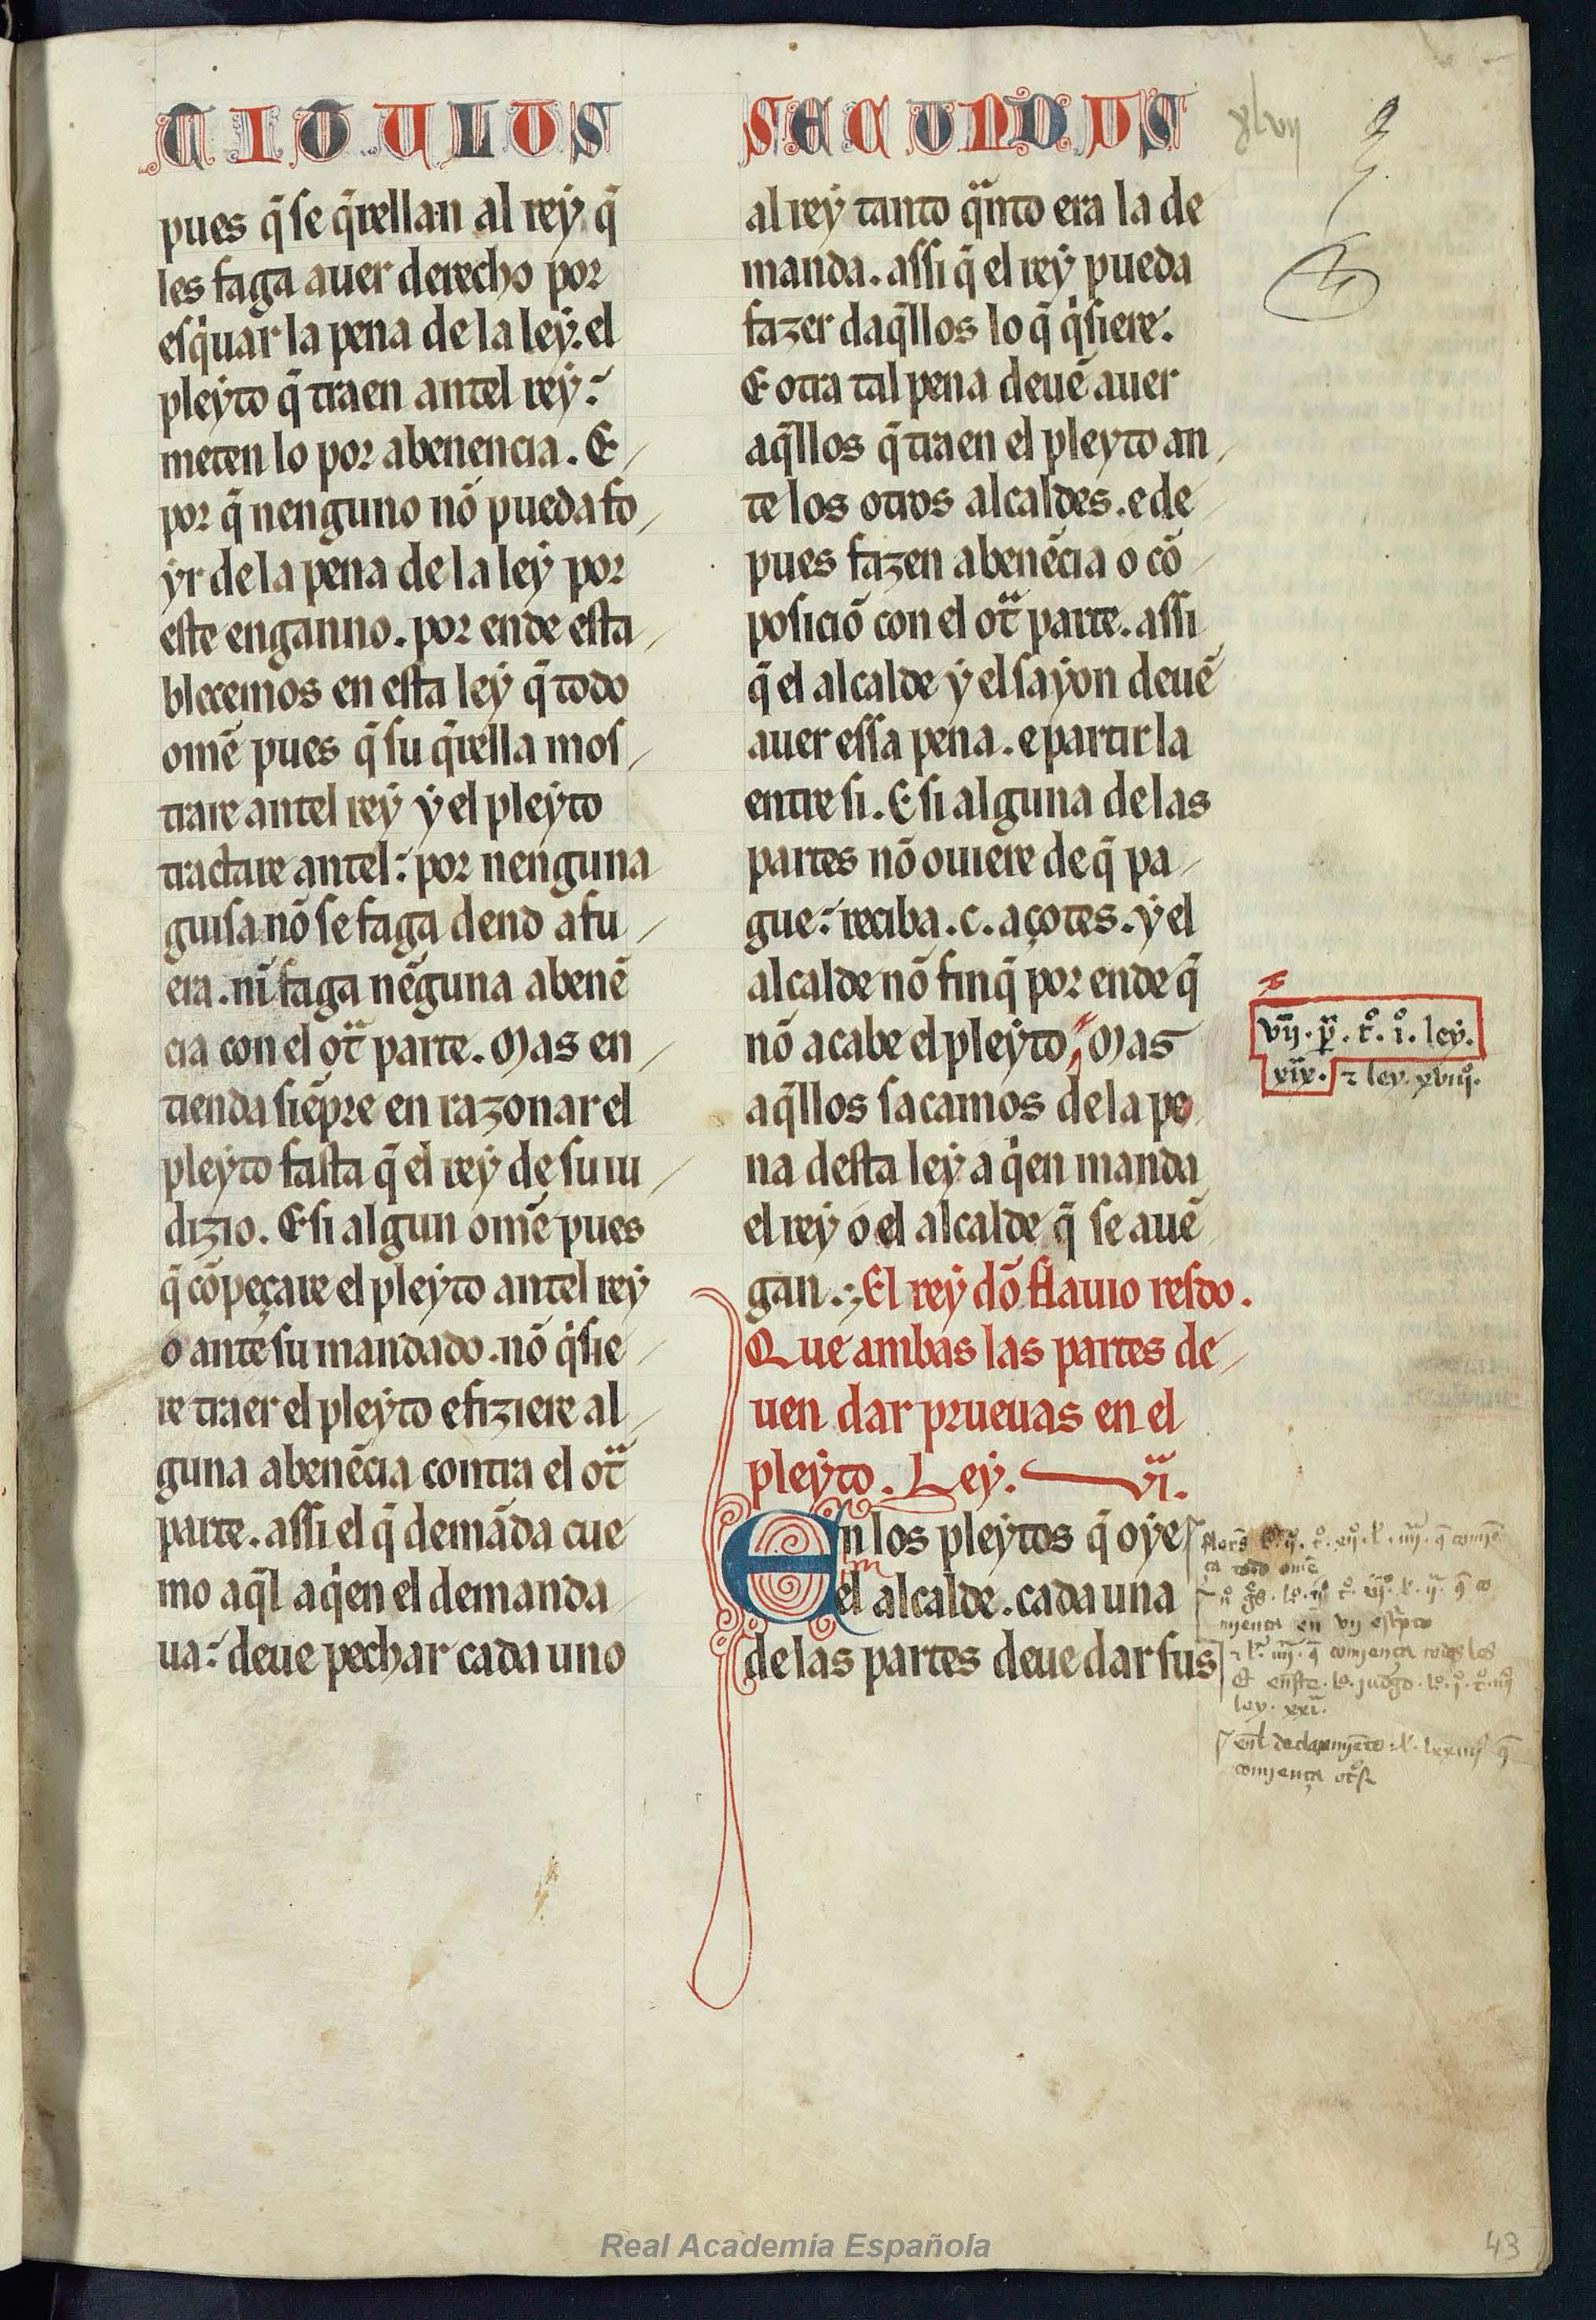 TITULUS SECUNDUS
xlvii
pues q̃ se q̃rellan al reẏ q̃
les faga auer derecho por
esq̇uar la pena de la leẏ. el
pleẏto q̃ traen antel reẏ:
meten lo por abenencia. E
por q̃ nenguno nõ pueda fo
ẏr de la pena de la leẏ por
este enganno. por ende esta
blecemos en esta leẏ q̃ todo
omẽ pues q̃ su q̃rella mos
trare antel reẏ ẏ el pleẏto
tractare antel: por nenguna
guisa nõ se faga dend afu
era. nĩ faga nẽguna abenẽ
cia con el otᷓ parte. Mas en
tienda siẽpre en razonar el
pleẏto fasta q̃ el reẏ de su iu
dizio. E si algun omẽ pues
q̃ cõpeçare el pleẏto antel reẏ
o ante su mandado. nõ q̇sie
re traer el pleẏto e fiziere al
guna abenẽcia contra el otᷓ
parte. assi el q̃ demãda cue
mo aq̃l aq̇en el demanda
ua: deue pechar cada uno
al reẏ tanto qᷓnto era la de
manda. assi q̃ el reẏ pueda
fazer daq̃llos lo q̃ q̇siere.
E otra tal pena deuẽ auer
aq̃llos q̃ traen el pleyto an
te los otros alcaldes. e de
pues fazen abenẽcia o cõ
posiciõ con el otᷓ parte. assi
q̃ el alcalde ẏ el saẏon deuẽ
auer essa pena. e partir la
entre si. E si alguna de las
partes nõ ouiere de q̃ pa
gue: reciba .c. açotes. ẏ el
alcalde nõ finq̃ por ende q̃
nõ acabe el pleẏto, Mas
aq̃llos sacamos de la pe
na desta leẏ a q̇en manda
el reẏ o el alcalde q̃ se auẽ
gan. El reẏ dõ flauio resdo.
Que ambas las partes de
uen dar prueuas en el
pleẏto. Leẏ. vi.
En los pleẏtos q̃ oẏe
m
el alcalde. cada una
de las partes deue dar sus
vii. p. t.º i. leẏ.
xix. ⁊ ley. xviiiº.
comiença todos los
ley. xxi.
comiença
43
Real Academia Española